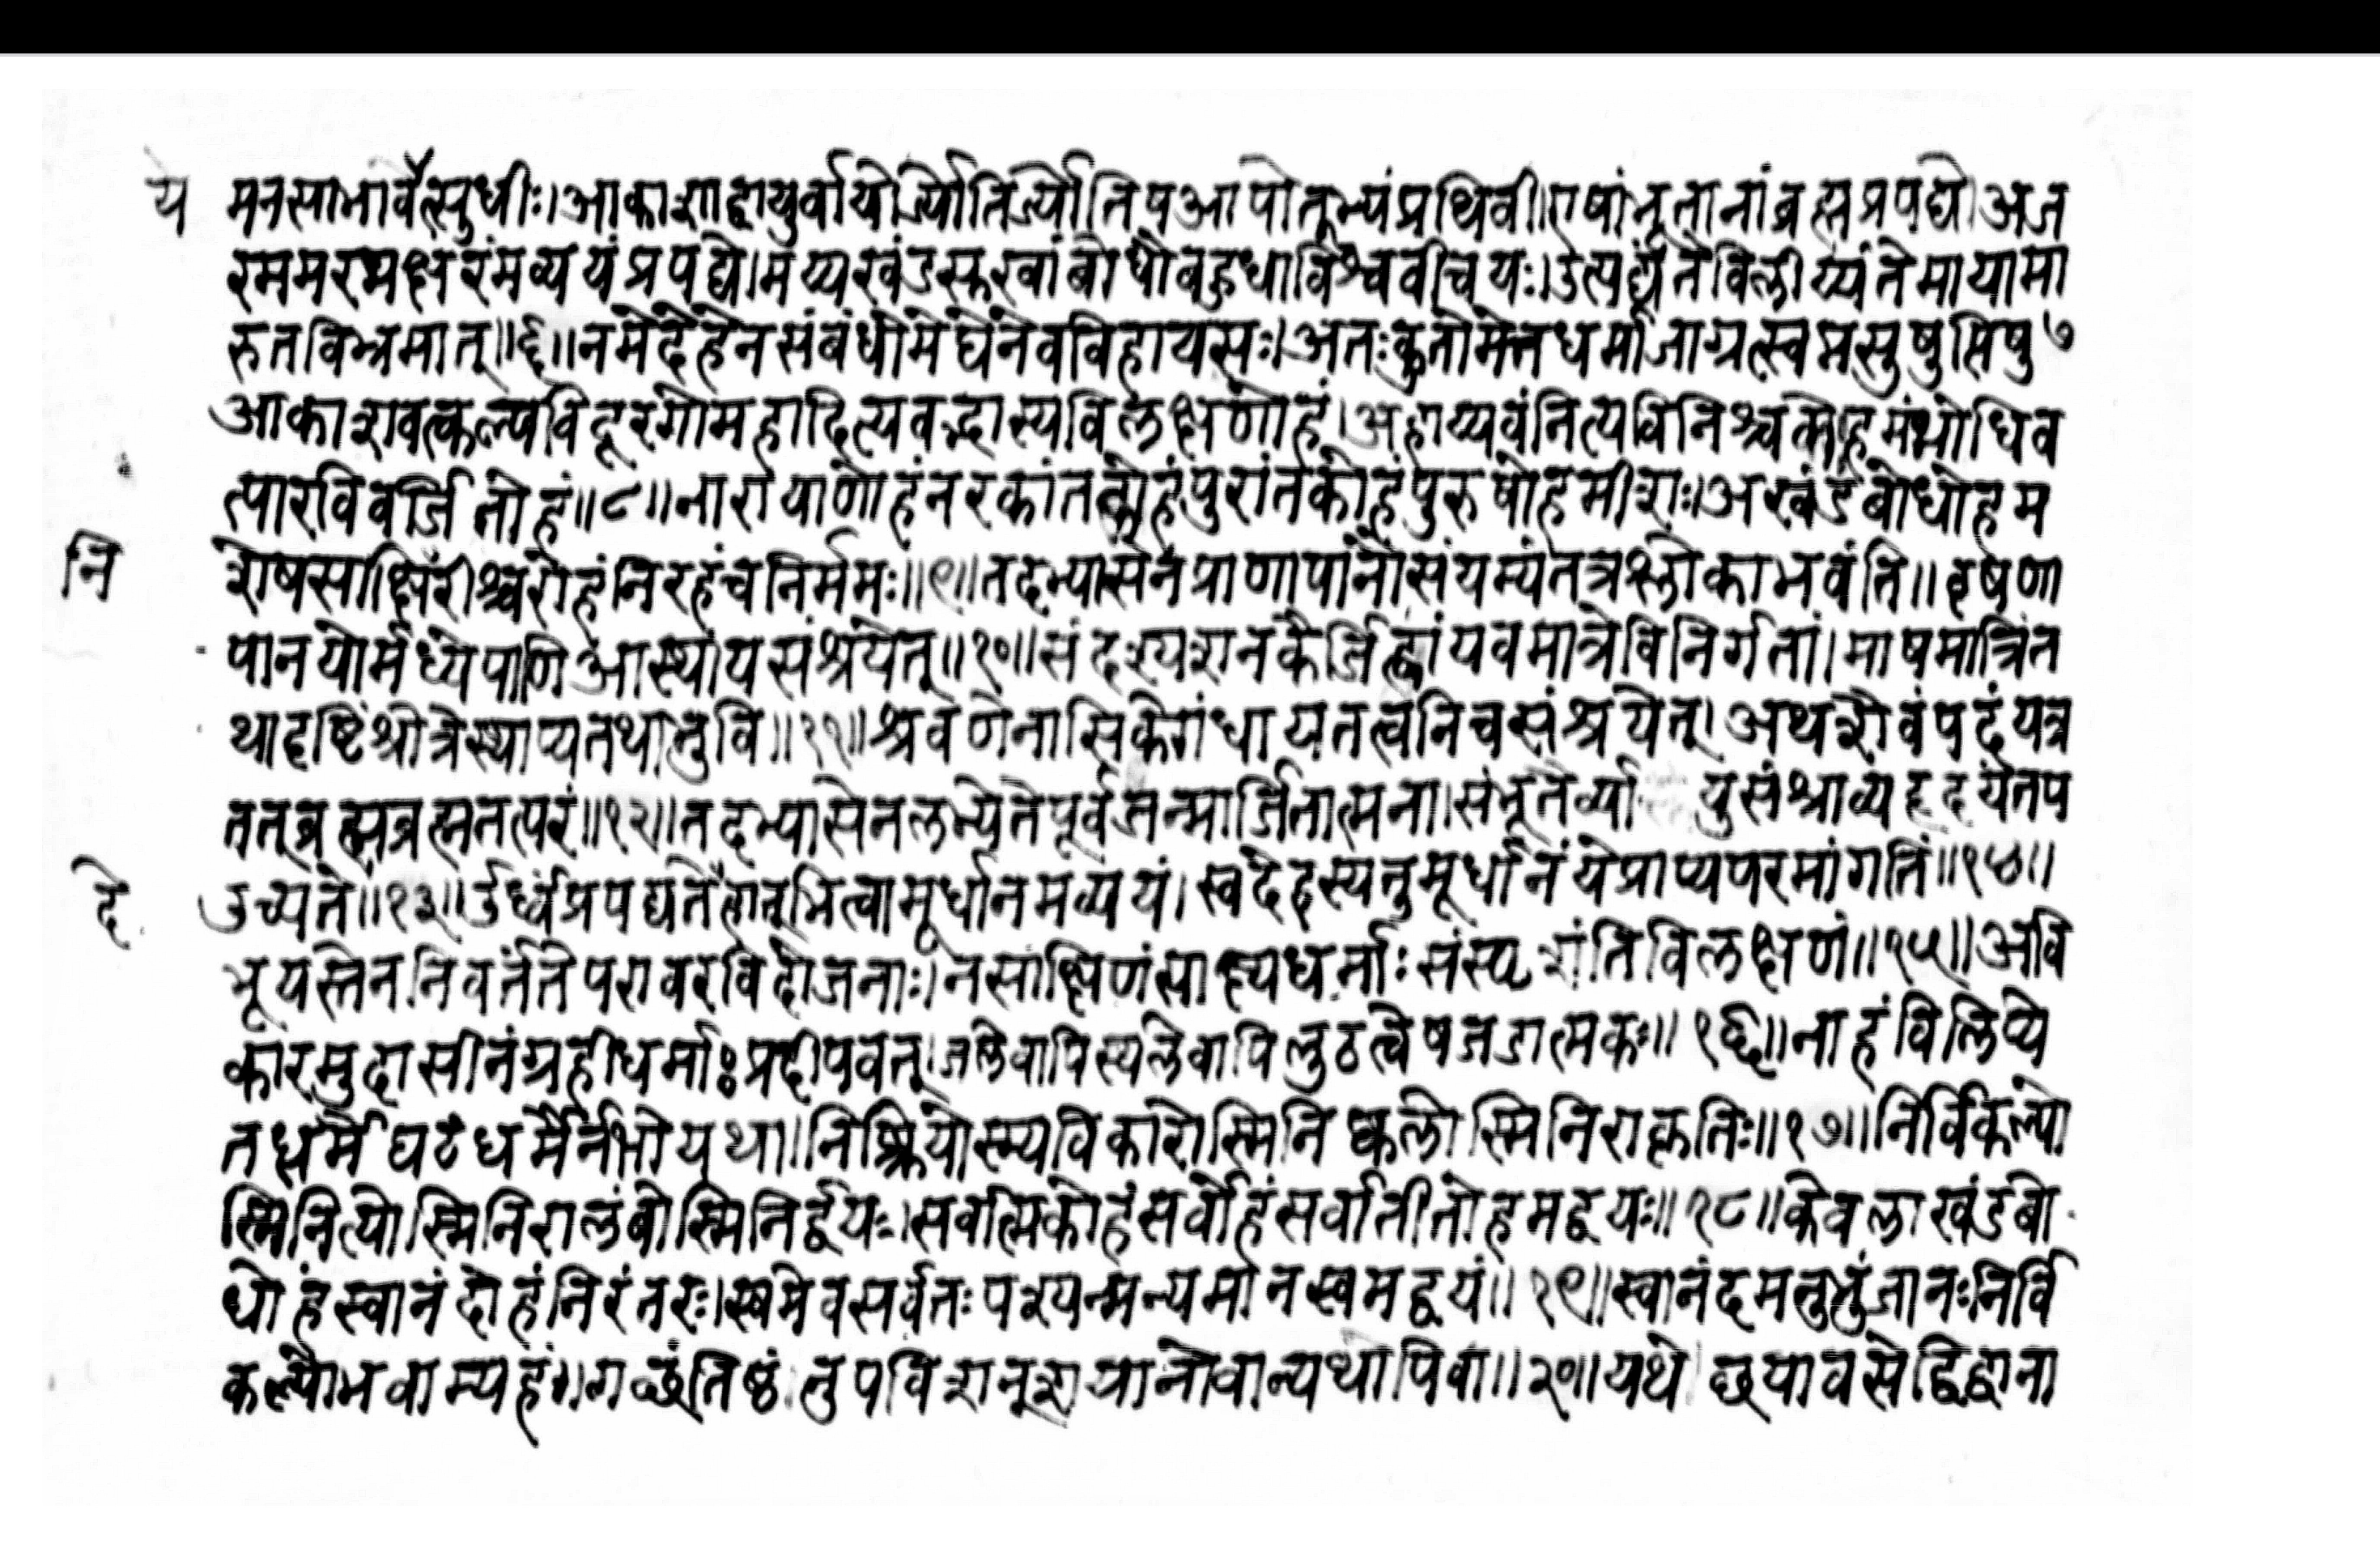 य मनसाभावेत्सुधीः।आकाशाद्वायुर्वायोर्ज्योतिर्ज्योतिषआपोतूभ्यंप्रथिवी।एषांभूतानांब्रह्मप्रपद्ये।अज
रममरमक्षरंमव्ययंप्रपद्ये।मय्यखंडसुखांबोधौबहुधाविश्ववीचयः।उत्पद्यंतेविलीय्यंतेमायामा
रुतविभ्रमात्॥६॥नमेदेहेनसंबंधोमेघेनेवविहायसः।अतःकुतोमेत्तधर्माजाग्रत्स्वप्नसुषुप्तिषु७
आकाशवत्कल्पविदूरगोमहादित्यवद्भास्यविलक्षणोहं।अहाय्यवंनित्यविनिश्चलोहमंभोधिव
त्पारविवर्जितोहं॥८॥नारायाणोहंनरकांतकोहंपुरांतकोहंपुरुषोहमीशः।अखंडबोधोहम
नि शेषसाक्षिरीश्वरोहंनिरहंचनिर्ममः॥९॥तदभ्यासेनप्राणापानौसंयम्यंतत्रश्लोकाभवंति॥वृषणा
पानयोर्मध्येपाणिआस्थायसंश्रयेत्॥१०॥संदश्यशनकैर्जिह्वांयवमात्रेविनिर्गतां।माषमात्रिंत
थादृष्टिंश्रोत्रेस्थाप्यतथाभुवि॥११॥श्रवणेनासिकेगंधायतत्वनिचसंश्रयेत्।अथशैवंपदंयत्र
तत्ब्रह्मब्रह्मतत्परं॥१२॥तदभ्यासेनलभ्येतेपूर्वजन्मार्जितात्मना।संभूतेर्व्या युसंश्राव्यहृदयेतप
दे उच्यते॥१३॥ऊर्ध्वंप्रपद्यतेहातुभित्वामूर्धानमव्ययं।स्वदेहस्यतुमूर्धानंयेप्राप्यपरमांगतिं॥१४॥
भूयस्तेननिवर्ततेपरावरविदोजनाः।नसाक्षिणंसाक्ष्यधर्माःसंस्पृशंतिविलक्षणं॥१५॥अवि
कारमुदासीनंग्रहीधर्माःप्रदीपवत्।जलेवापिस्थलेवापिलुठत्वेषजडात्मकः॥१६॥नाहंविलिप्ये
तध्धर्मैघटधर्मैर्नभोयथा।निष्क्रियोस्म्यविकारोस्मिनिष्कलोस्मिनिराकृतिः॥१७॥निर्विकल्पो
स्मिनित्योस्मिनिरालंबोस्मिनिर्द्वयः।सर्वात्मिकोहंसर्वोहंसर्वातीतोहमद्वयः॥१८॥केवलाखंडबो
धोहंस्वानंदोहंनिरंतरः।स्वमेवसर्वतःपश्यन्मन्यमानस्वमद्वयं॥१९॥स्वानंदमनुभुंजानःनिर्वि
कल्पोभवाम्यहं।गछंतिष्ठंनुपविशन्शयानोवान्यथोपिवा॥२०॥यथेछयावसेद्विद्वाना